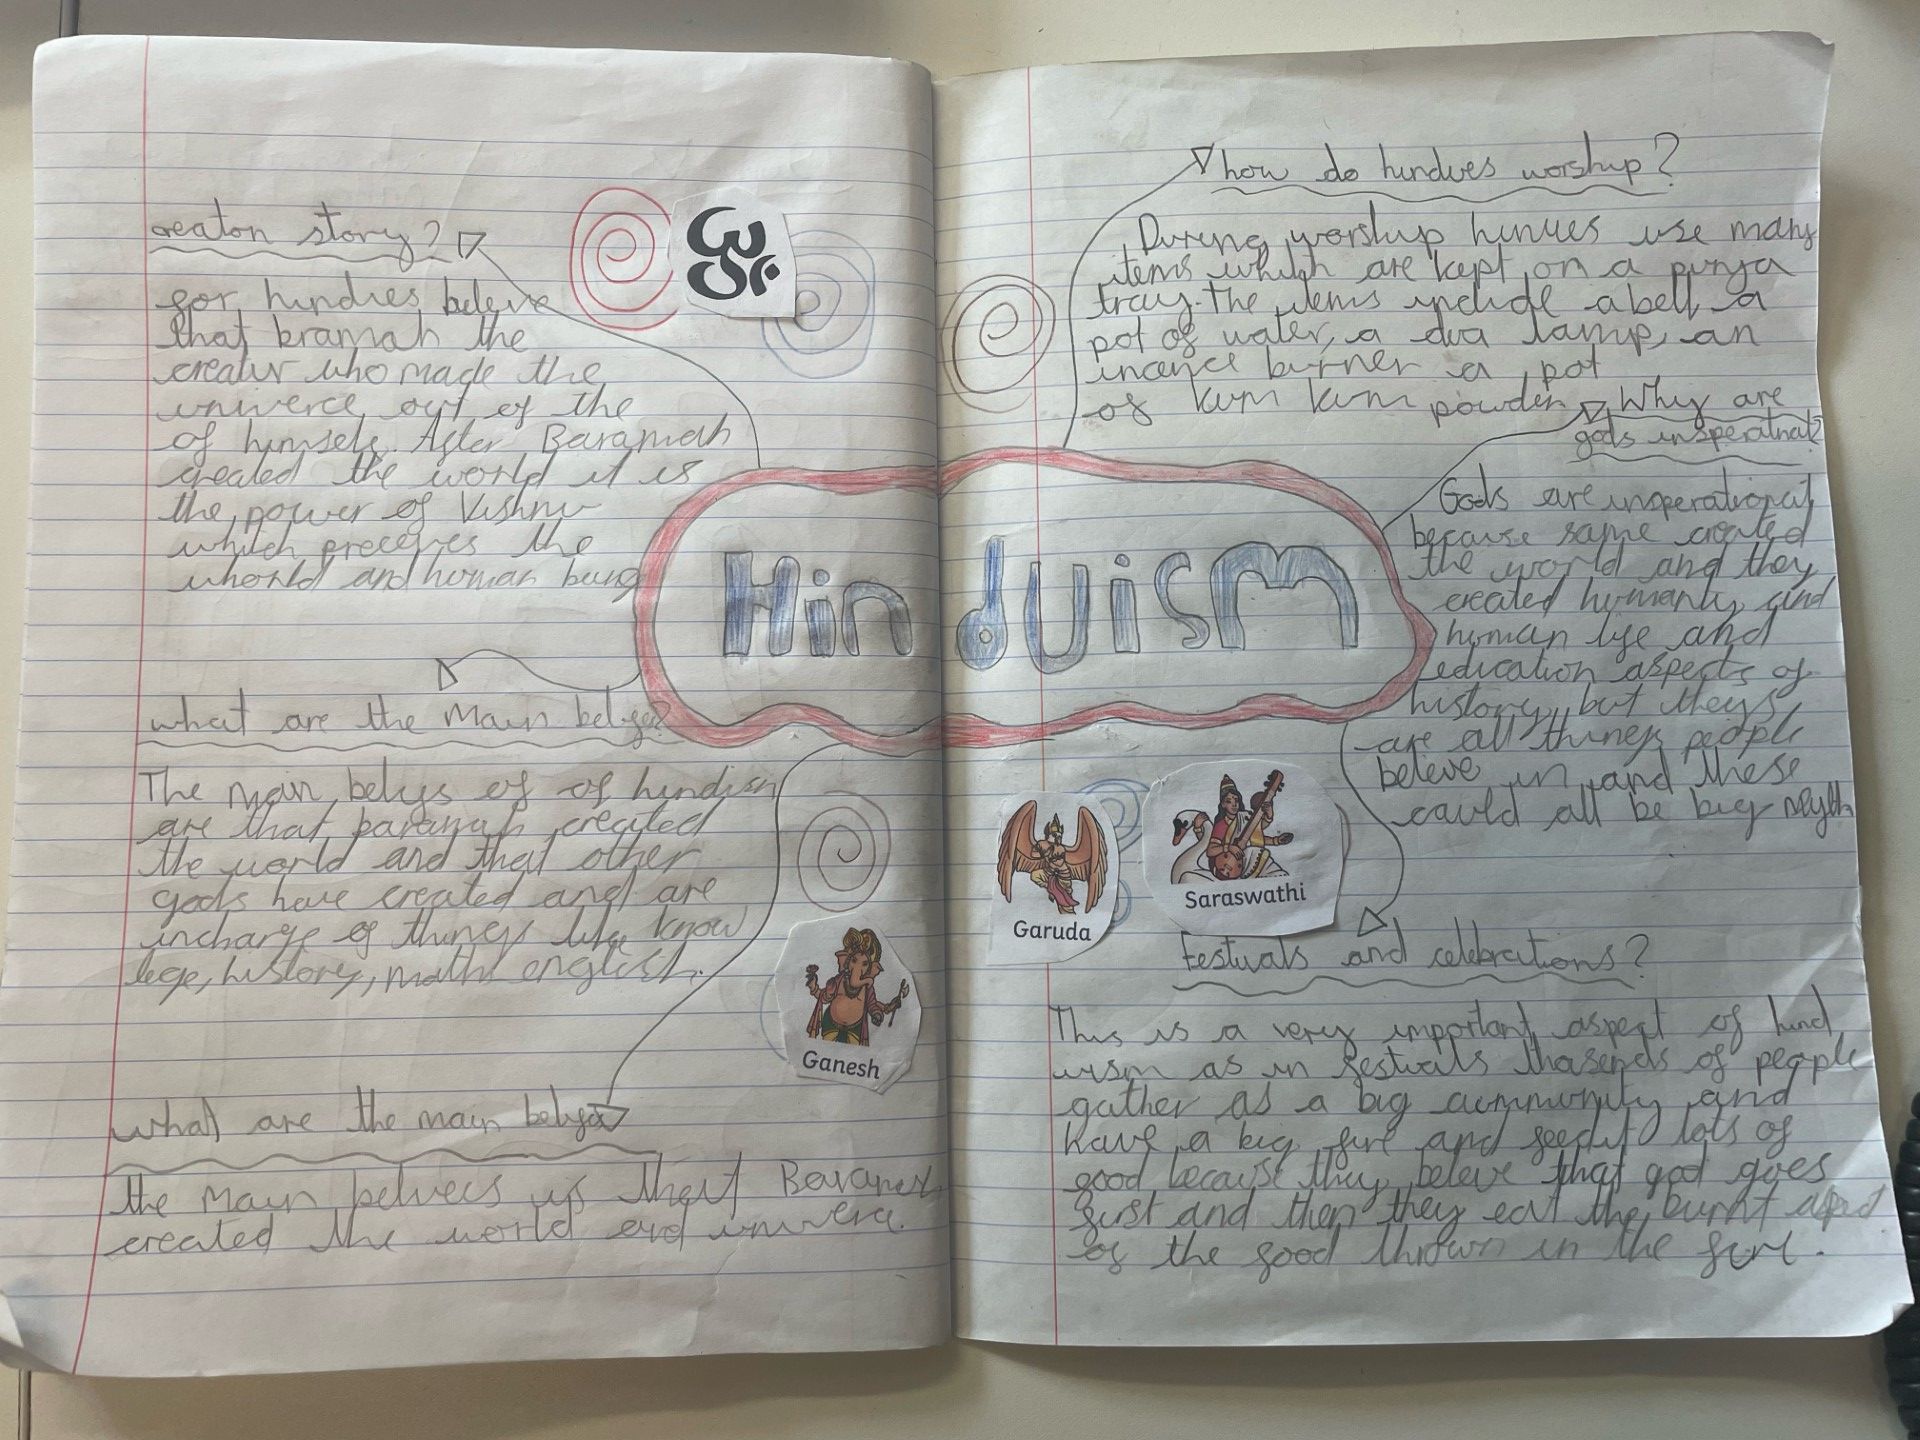 creaton story?
for hindies beleve
that bramah the
creatur who made the
univerce out of the
of himself. After Baramah
created the world it is
the power of Vishnu
which preceves the
whorld and human bung
what are the main belyes?
The main belys of of hindism
are that baramah created
the world and that other
gods have created and are
incharge of things like know
lege, history, maths english.
what are the main belyes
the main belvees is that Baramah
created the world and univerce.
ॐ
Hinduism
Ganesh
how do hindues worship?
During worship hinues use many
items which are kept on a punja
tray. The items include a bell, a
pot of water, a diva lamp, an
incence burner a pot
of kum kum powder
Why are
gods insperatnal?
Gods are insperational
because some created
the world and they
created humanty and
human life and
education aspects of
history but theys
are all things people
beleve in and these
could all be big myth
Garuda
Saraswathi
Festivals and celebrations?
This is a very important aspect of hind
uism as in festivals thasends of people
gather as a big cummunity and
have a big fire and feed it lots of
food because they beleve that god goes
first and then they eat the burnt aspect
of the food thrown in the fire.